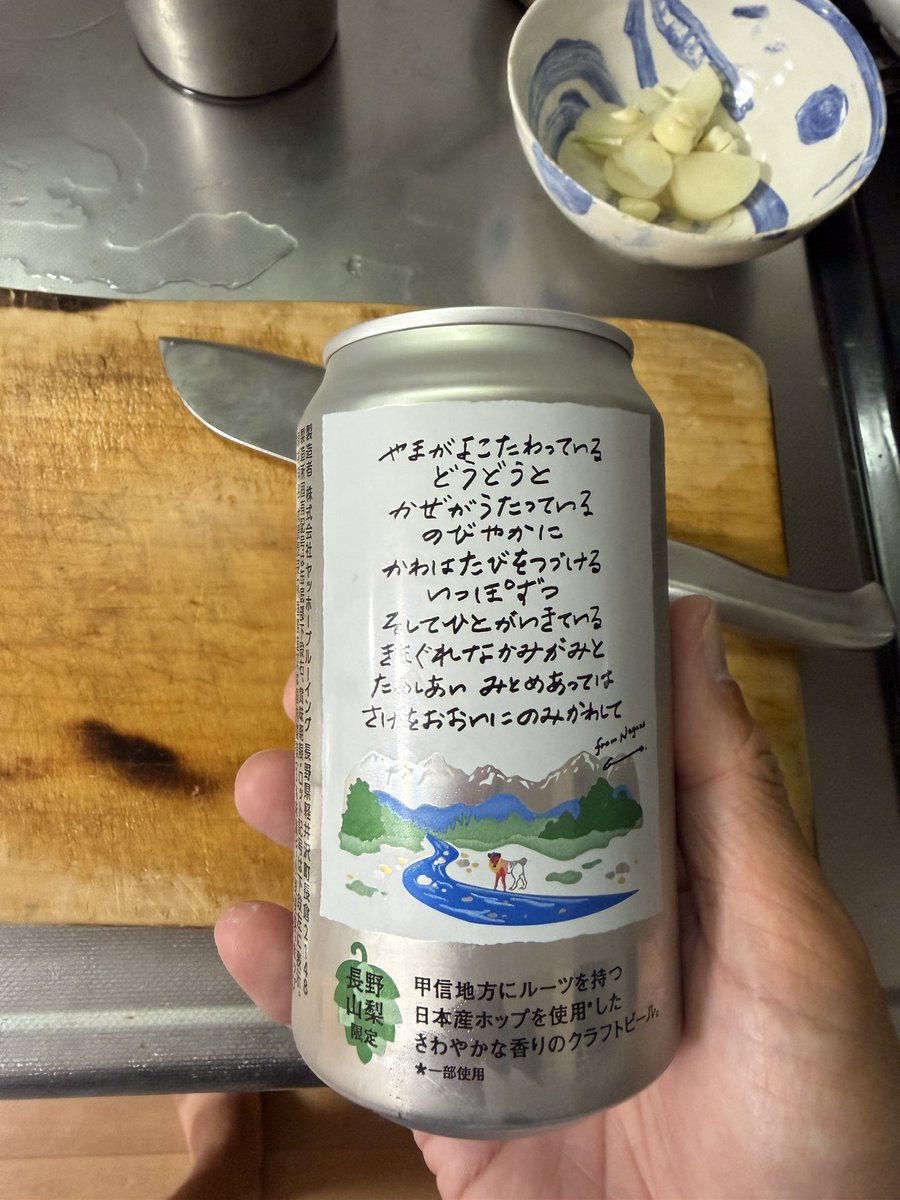 やまがよこたわっている
どうどうと
かぜがうたっている
のびやかに
かわはたびをつづける
いっぽずつ
そしてひとがいきている
きまぐれなかみがみと
ためしあい みとめあっては
さけをおおいにのみかわして
from Nagano
長野
山梨
限定
甲信地方にルーツを持つ
日本産ホップを使用*した
さわやかな香りのクラフトビール。
★一部使用
製造者 株式会社ヤッホーブルーイング 長野県軽井沢町長倉2148